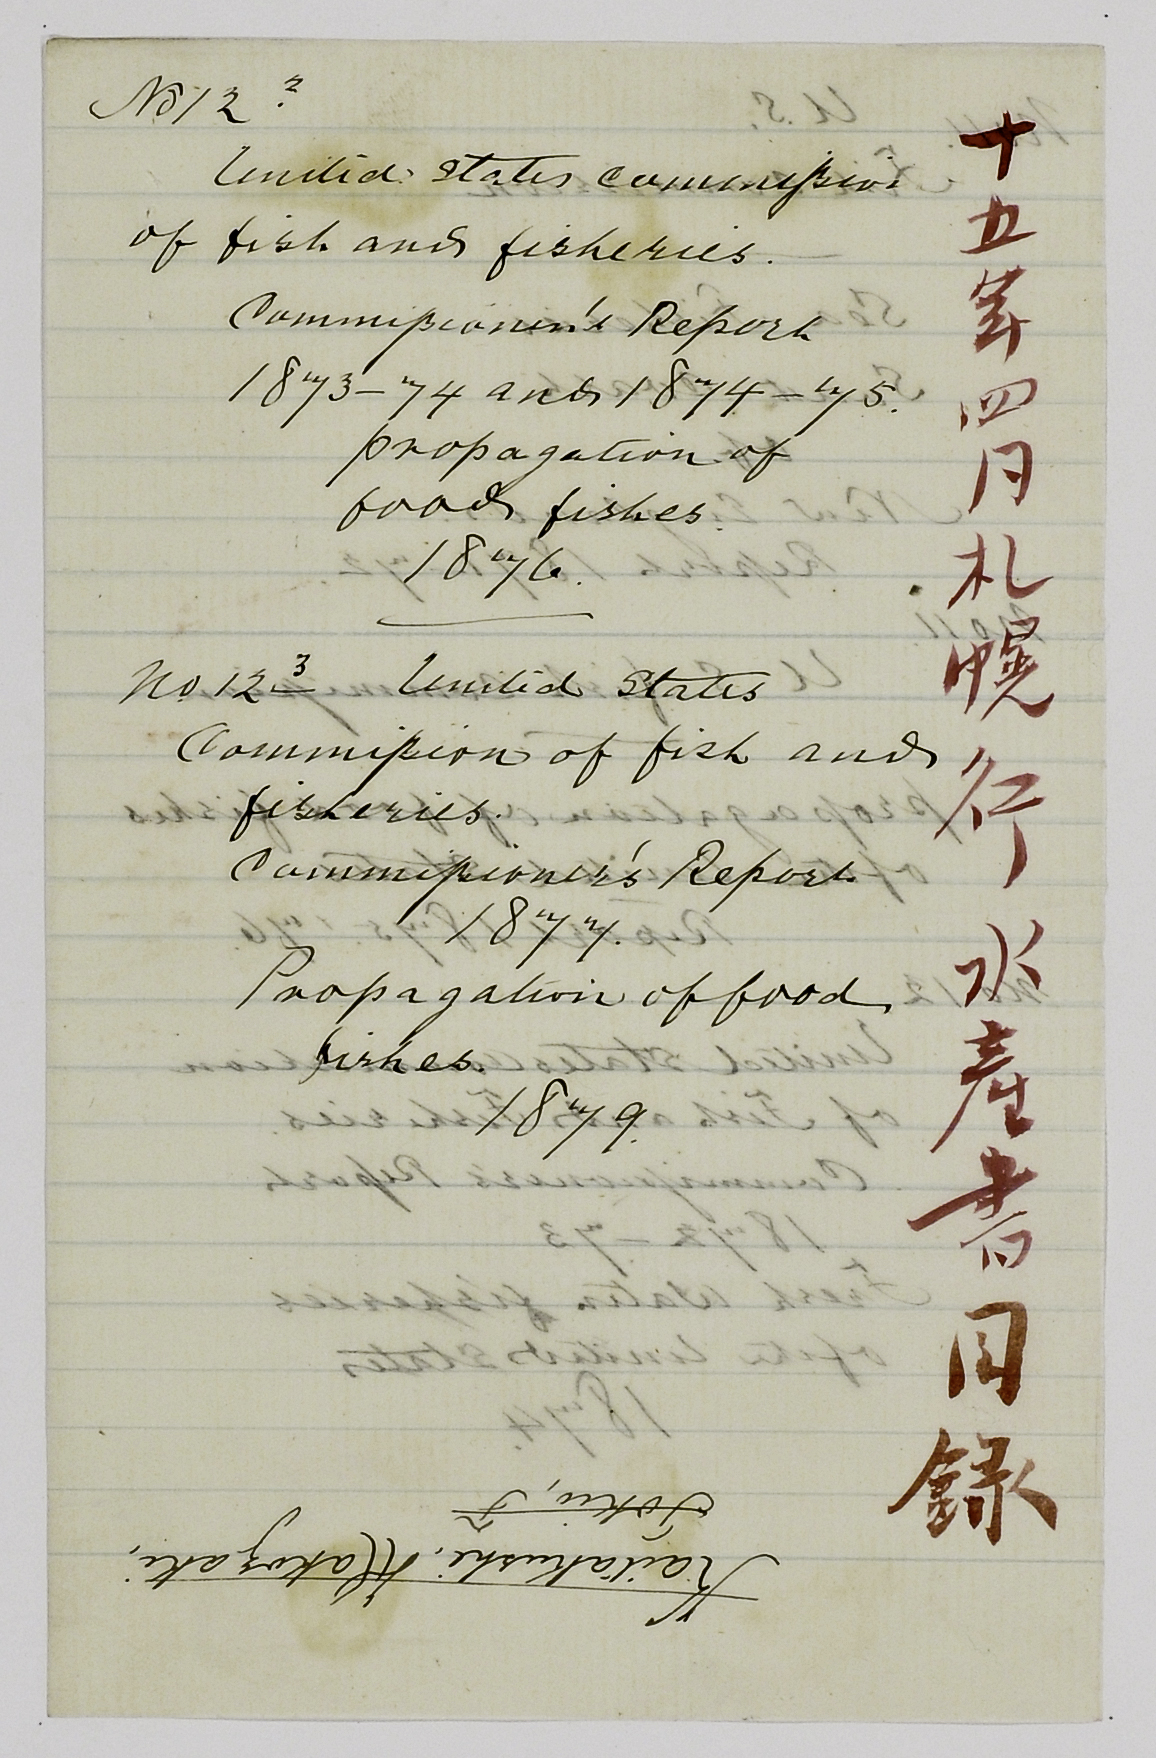 No 12 2
United States Commission
of fish and fisheries.
Commissioner's Report
1873-74 and 1874-75.
propagation of
food fishes.
1876.
No. 12 3 United States
Commission of fish and
fisheries.
Commissioner's Report
1877.
Propagation of food
fishes.
1879.
Kaitakushi. Hakozaki,
Tokio, J
十五年四月札幌行水産書目録